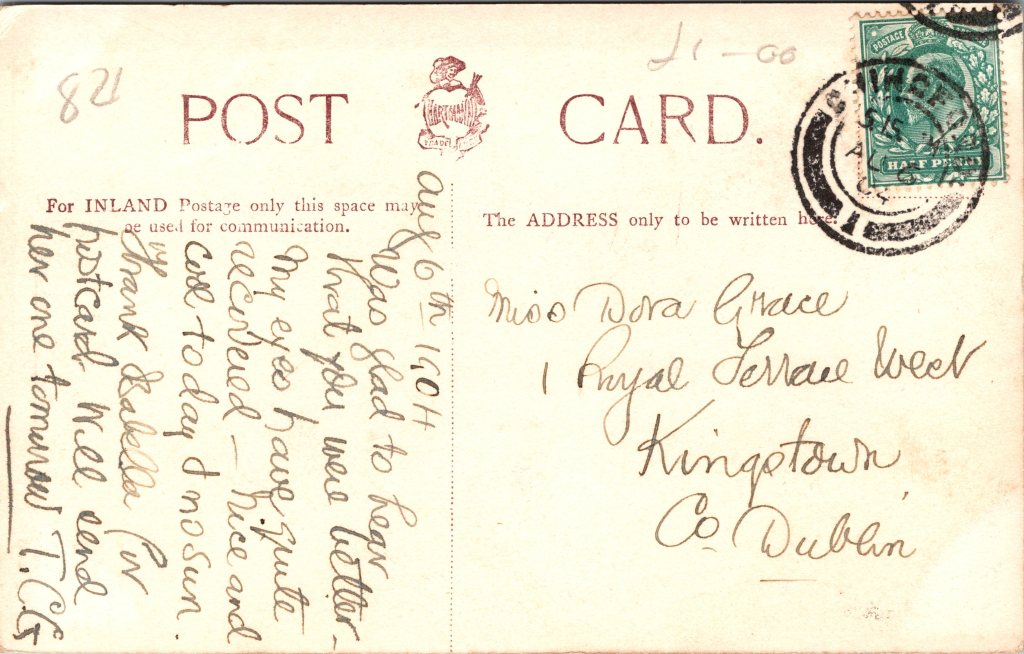 821
£1-00
POST CARD.
HARTMANN
POSTAGE
HALF PENNY
AU 6
04
For INLAND Postage only this space may
be used for communication.
The ADDRESS only to be written here.
Aug 6th 1904
Was glad to hear
that you were better -
My eyes have quite
recovered - Nice and
cool today & no sun.
Thank Isabella for
postcard Will send
her one tomorrow T.C.G
Miss Dora Grace
1 Royal Terrace West
Kingstown
Co Dublin